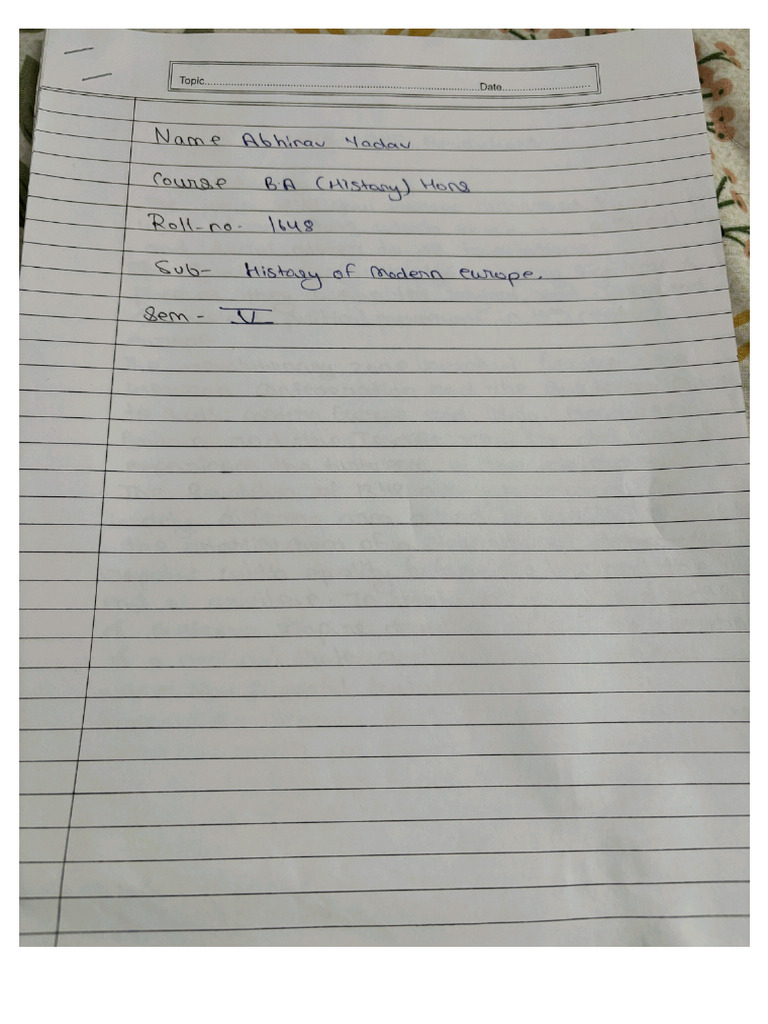 Topic..........Date..........
Name Abhinav Yadav
Course BA (History) Hons
Roll-no. 1648
Sub- History of modern europe.
Sem - V